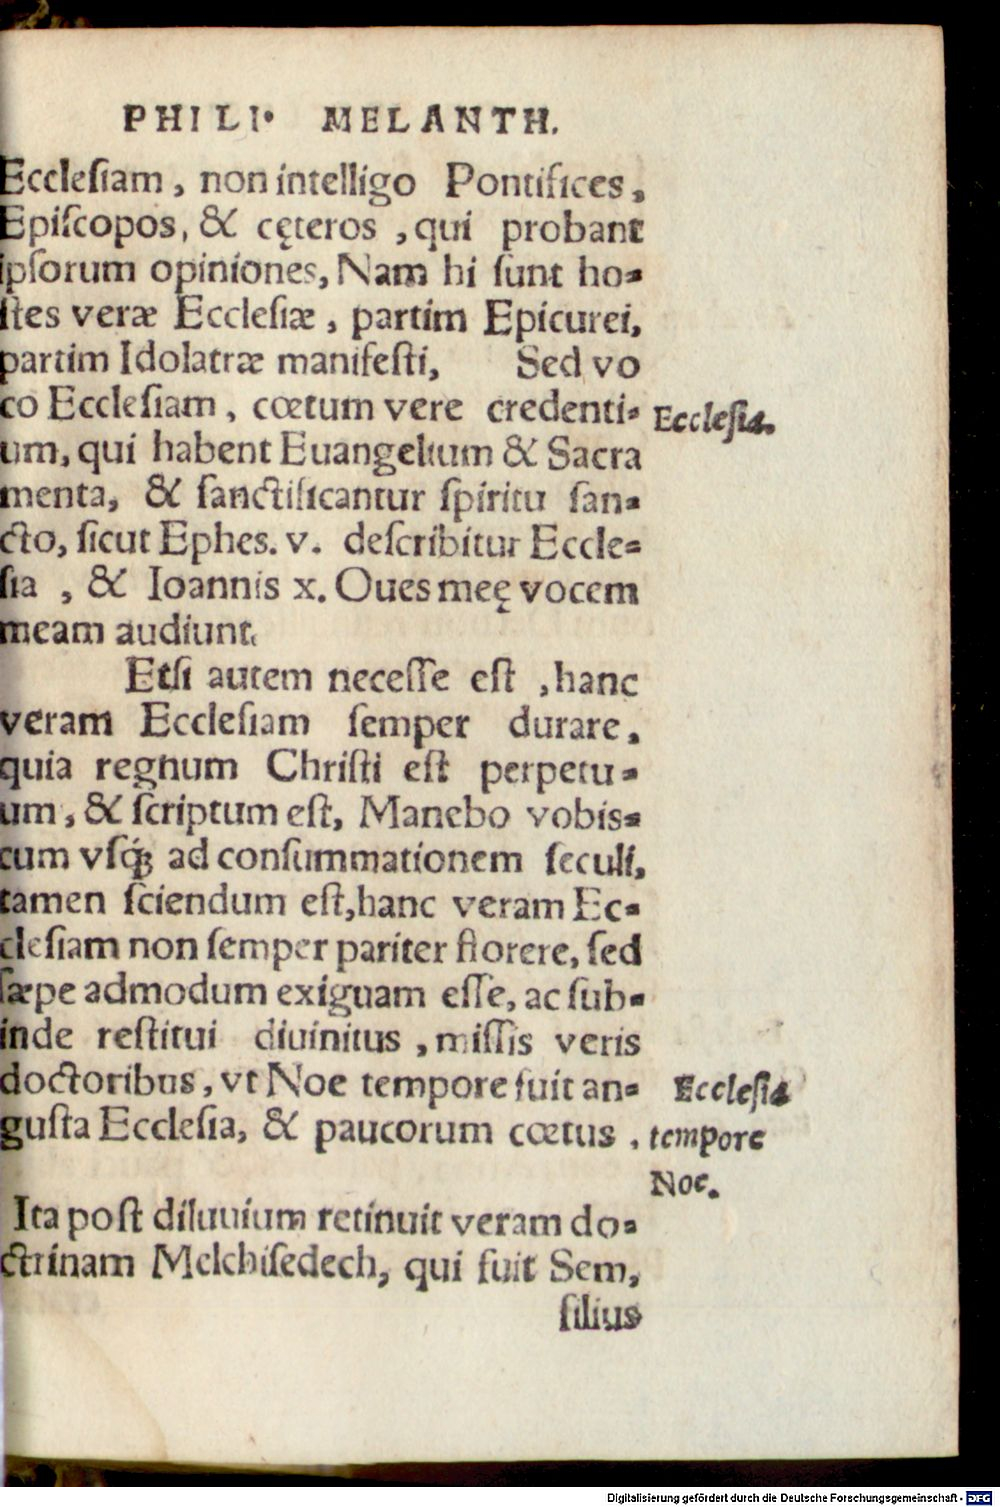 PHILI. MELANTH.
Ecclesiam, non intelligo Pontifices,
Episcopos, & cęteros, qui probant
ipsorum opiniones, Nam hi sunt ho-
stes veræ Ecclesiæ, partim Epicurei,
partim Idolatræ manifesti, Sed vo
co Ecclesiam, cœtum vere credenti-
Ecclesia.
um, qui habent Euangelium & Sacra
menta, & sanctificantur spiritu san-
cto, sicut Ephes. v. describitur Eccle-
sia, & Ioannis x. Oues meę vocem
meam audiunt.
Etsi autem necesse est, hanc
veram Ecclesiam semper durare,
quia regnum Christi est perpetu-
um, & scriptum est, Manebo vobis-
cum vsq́ꝫ ad consummationem seculi,
tamen sciendum est, hanc veram Ec-
clesiam non semper pariter florere, sed
sæpe admodum exiguam esse, ac sub-
inde restitui diuinitus, missis veris
doctoribus, vt Noe tempore fuit an-
gusta Ecclesia, & paucorum cœtus.
Ecclesia
tempore
Noe.
Ita post diluuium retinuit veram do-
ctrinam Melchisedech, qui fuit Sem,
filius
Digitalisierung gefördert durch die Deutsche Forschungsgemeinschaft - DFG